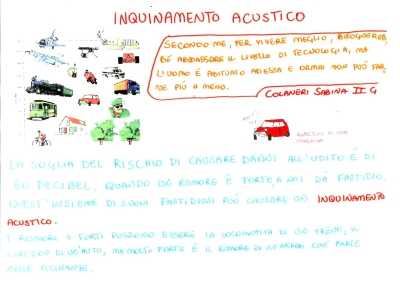 INQUINAMENTO ACUSTICO
SECONDO ME, PER VIVERE MEGLIO, BISOGNEREB
BE ABBASSARE IL LIVELLO DI TECNOLOGIA, MA
L'UOMO È ABITUATO ADESSO E ORMAI NON PUÒ FAR
NE PIÙ A MENO.
COLANERI SABINA II G
LA SOGLIA DEL RISCHIO DI CAUSARE DANNI ALL'UDITO È DI
80 DECIBEL, QUANDO UN RUMORE È FORTE, A NOI DÀ FASTIDIO,
QUEST'INSIEME DI SUONI FASTIDIOSI PUÒ CAUSARE UN INQUINAMENTO
ACUSTICO.
I RUMORI + FORTI POSSONO ESSERE LA LOCOMOTIVA DI UN TRENO, IL
DI UN'AUTO, MA MOLTO FORTE È IL RUMORE DI UN AEREO CHE PARTE